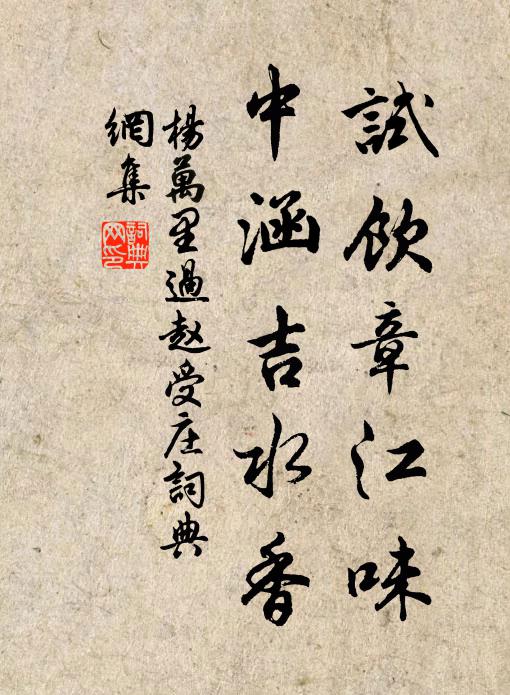 試飲章江味
中涵吉水香
楊萬里過赵受庄詞典
網集
詞典
网印